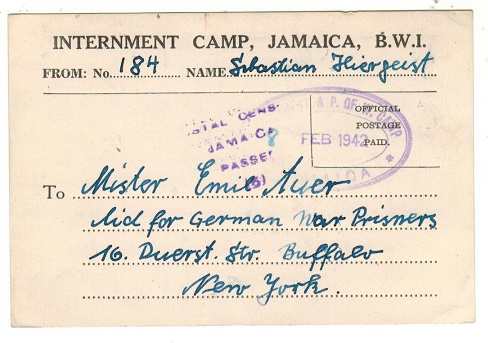 INTERNMENT CAMP, JAMAICA, B.W.I.
FROM: No. 184 NAME Sebastian Hiergeist
OFFICIAL
POSTAGE
PAID.
& P. OF W. CAMP
8 FEB 1942
JAMAICA
PASSED
To Mister Emil Auer
Aid for German War Prisners
16. Duerst. Str. Buffalo
New York.